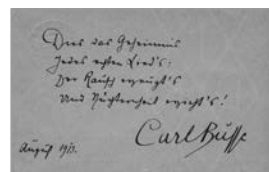 Dies das Geheimnis
Jedes echten Lied's:
Der Rausch erzeugt's
Und Nüchternheit erzieht's!
Carl Busse
August 1911.